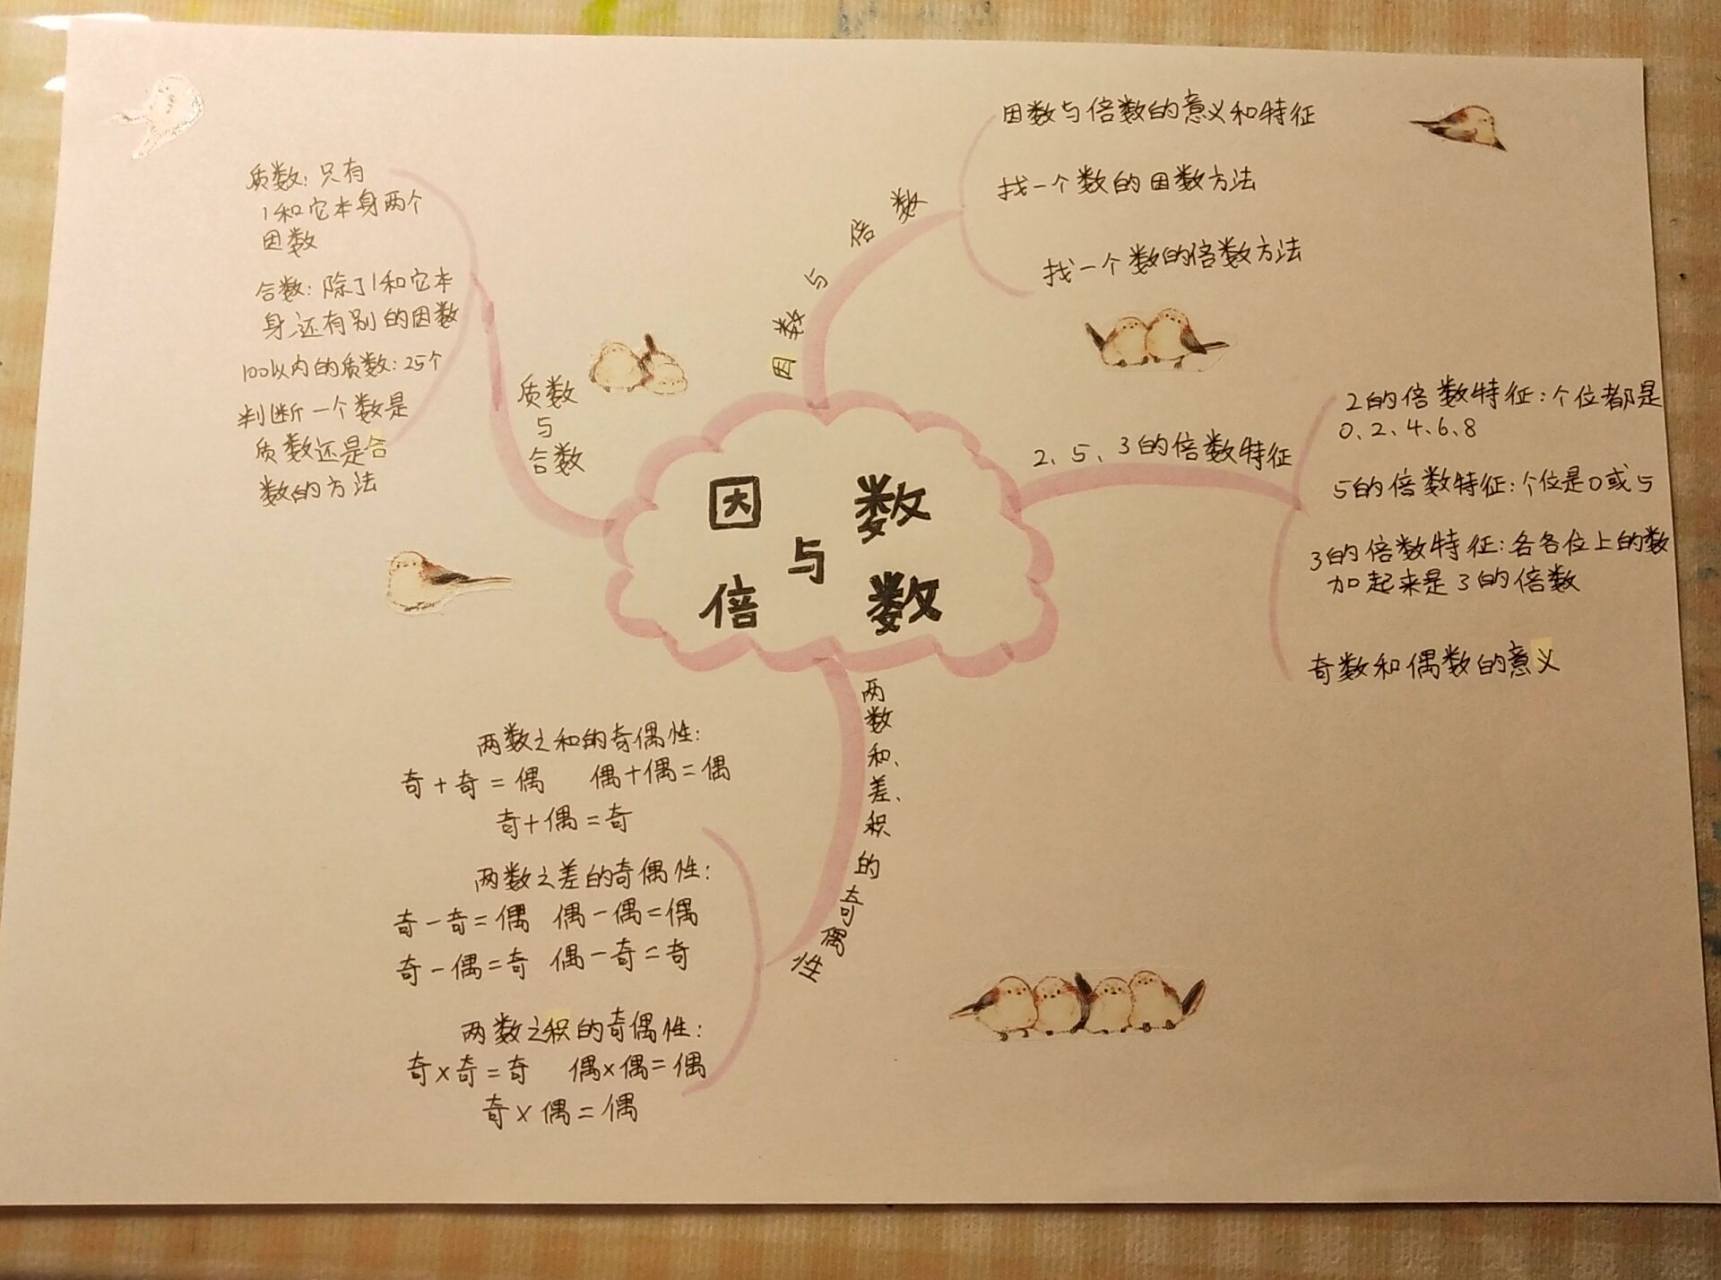 因数
与
倍数
因数与倍数
因数与倍数的意义和特征
找一个数的因数方法
找一个数的倍数方法
2、5、3的倍数特征
2的倍数特征：个位都是
0、2、4、6、8
5的倍数特征：个位是0或5
3的倍数特征：各各位上的数
加起来是3的倍数
奇数和偶数的意义
两数和、差、积的奇偶性
两数之和的奇偶性：
奇+奇=偶 偶+偶=偶
奇+偶=奇
两数之差的奇偶性：
奇-奇=偶 偶-偶=偶
奇-偶=奇 偶-奇=奇
两数之积的奇偶性：
奇×奇=奇 偶×偶=偶
奇×偶=偶
质数
与
合数
质数：只有
1和它本身两个
因数
合数：除了1和它本
身还有别的因数
100以内的质数：25个
判断一个数是
质数还是合
数的方法